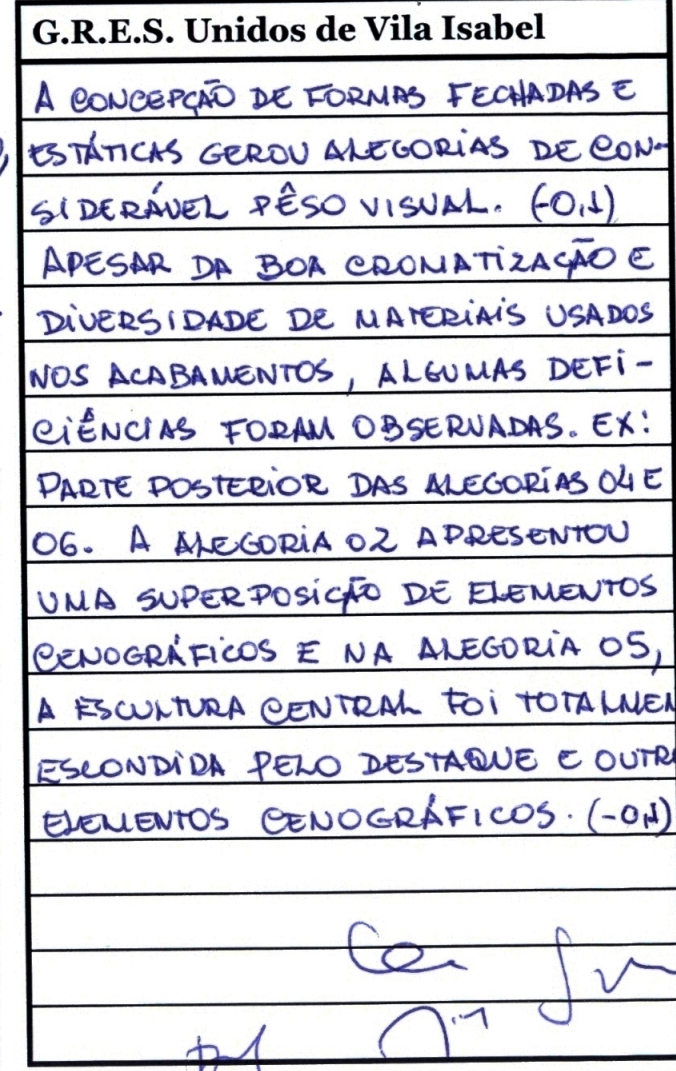 G.R.E.S. Unidos de Vila Isabel
A CONCEPÇÃO DE FORMAS FECHADAS E
ESTÁTICAS GEROU ALEGORIAS DE CON-
SIDERÁVEL PÊSO VISUAL. (-0,1)
APESAR DA BOA CROMATIZAÇÃO E
DIVERSIDADE DE MATERIAIS USADOS
NOS ACABAMENTOS, ALGUMAS DEFI-
CIÊNCIAS FORAM OBSERVADAS. EX:
PARTE POSTERIOR DAS ALEGORÍAS 04 E
06. A ALEGORIA 02 APRESENTOU
UMA SUPERPOSIÇÃO DE ELEMENTOS
CENOGRÁFICOS E NA ALEGORIA 05,
A ESCULTURA CENTRAL FOI TOTALMEN
ESCONDIDA PELO DESTAQUE E OUTR
ELEMENTOS CENOGRÁFICOS. (-0,1)